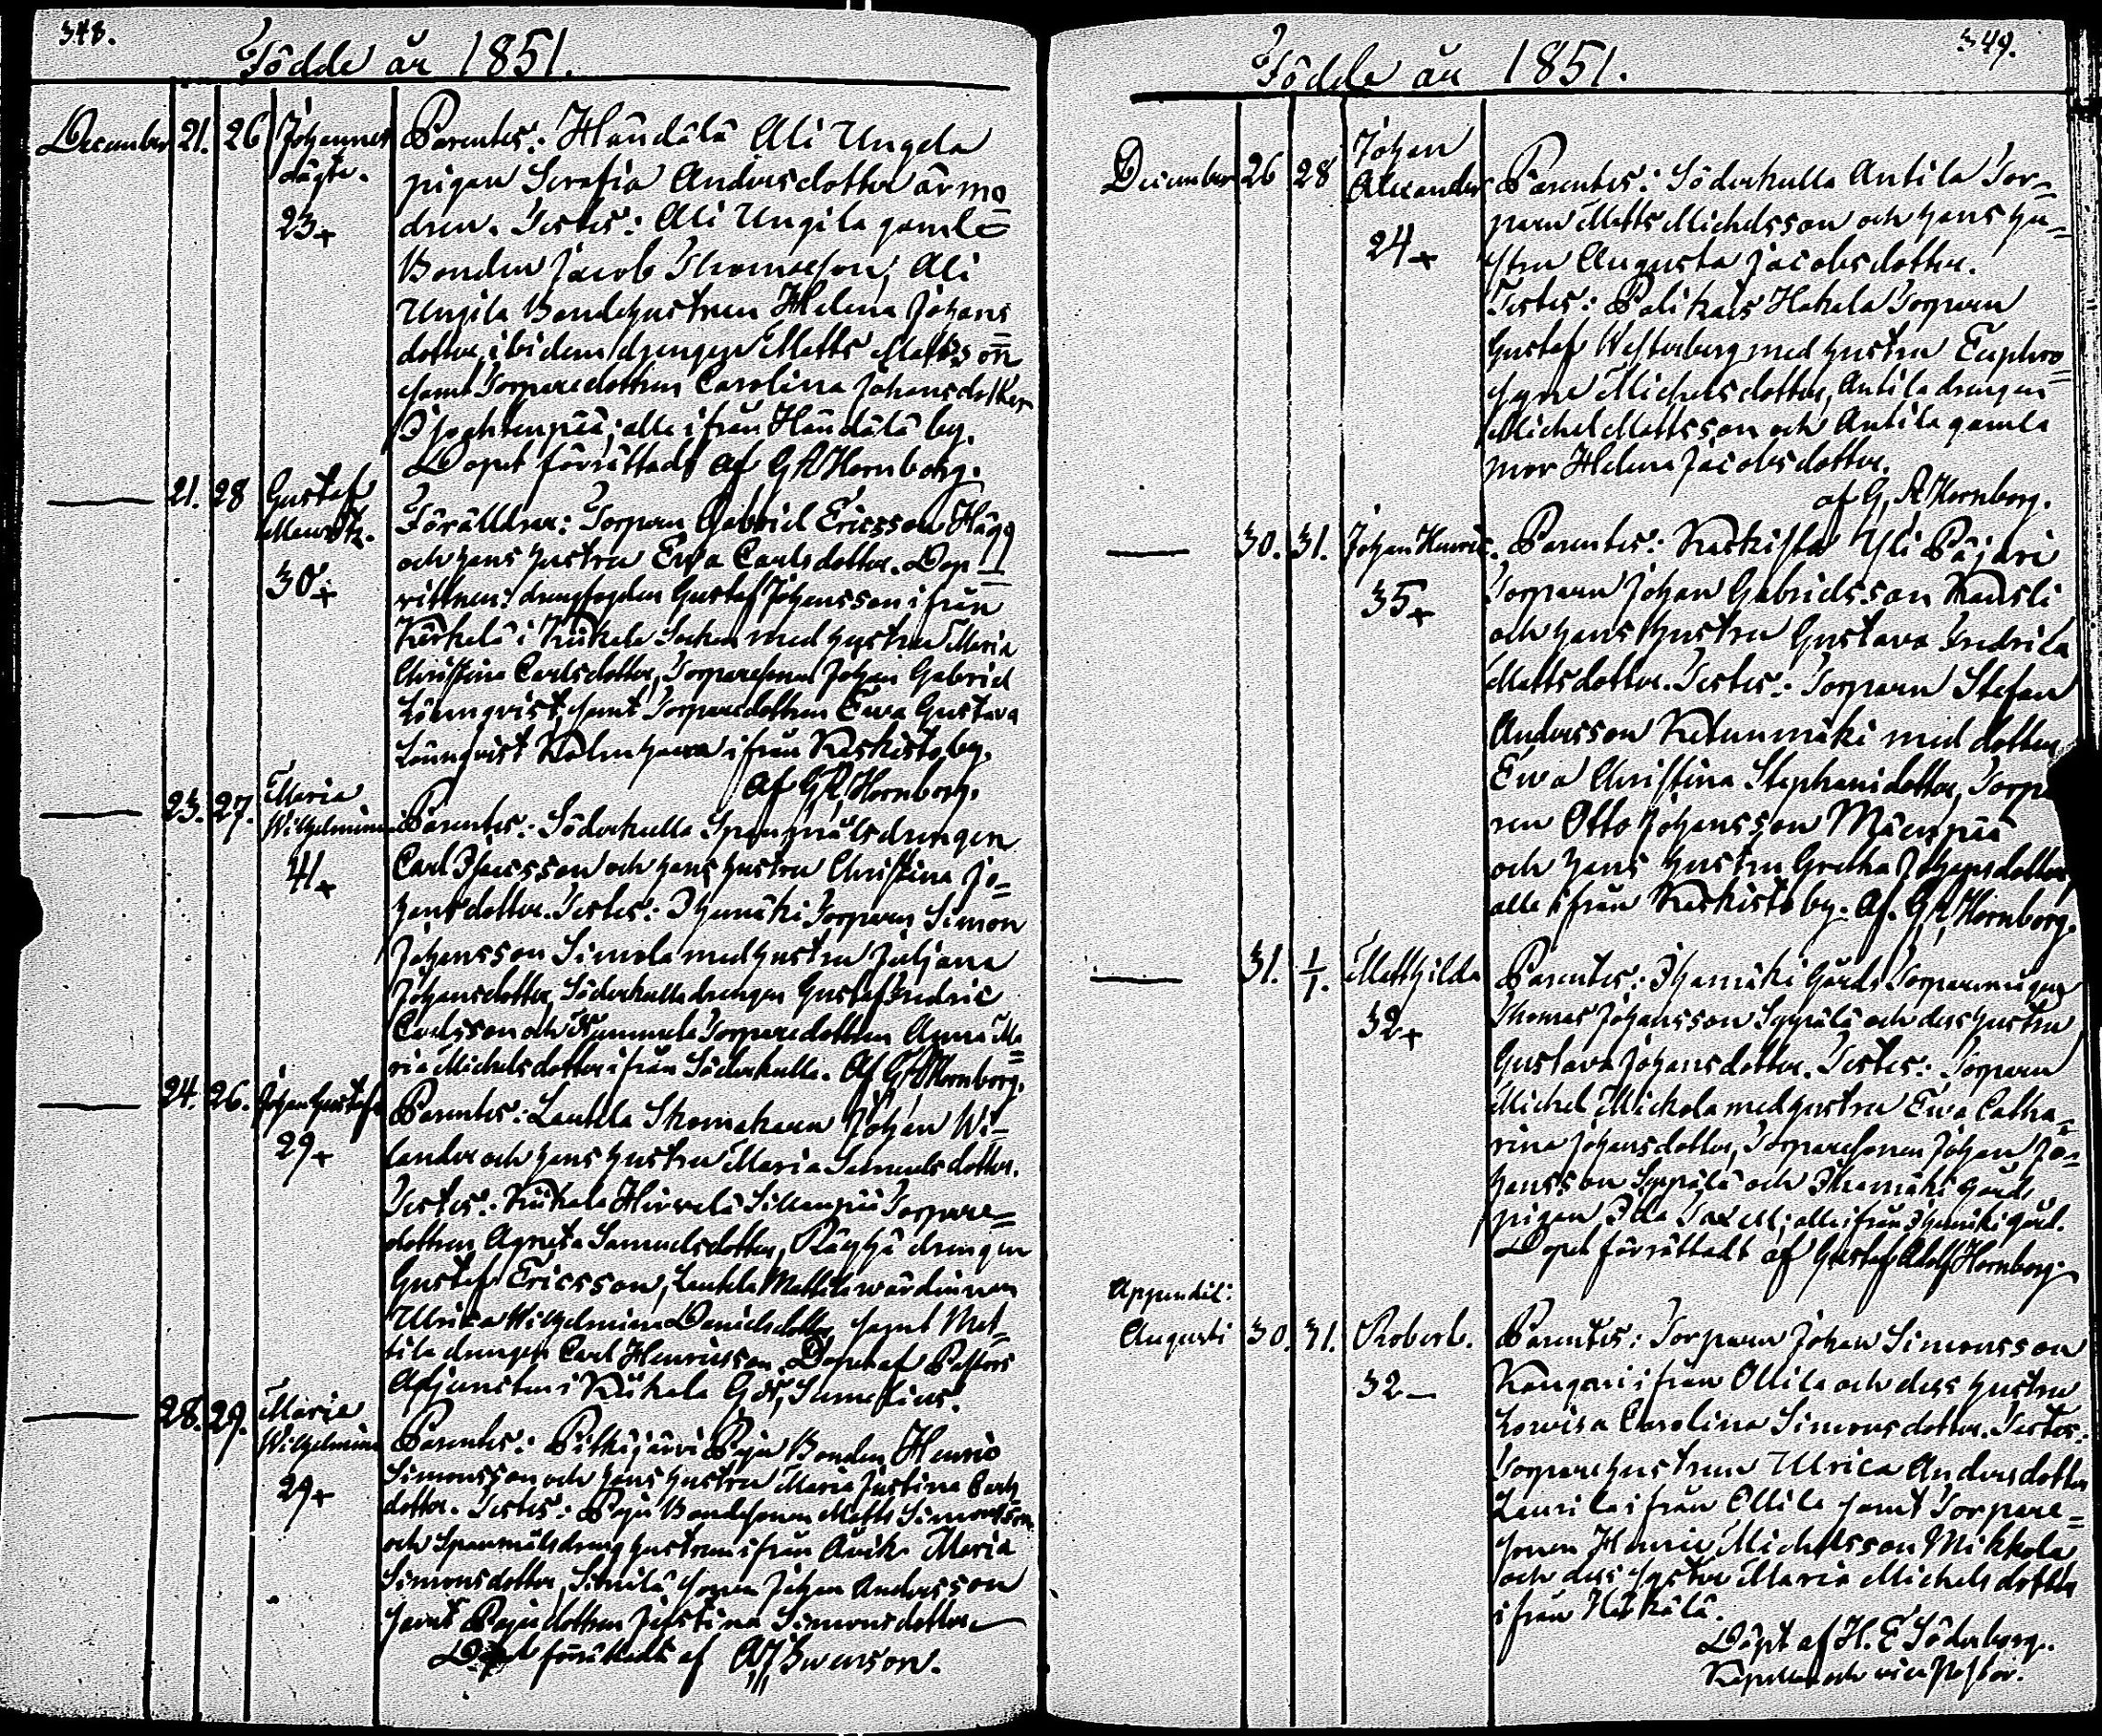 348.
Födde år 1851.
December 21. 26 Johannes Parentes: Händälä Ali Ungela
oägta. pigan Serafia Andersdotter är mo=
23+ dren. Testes: Ali Ungila gamle
Bonden Jacob Thomasson, Ali
Ungila Bondehustrun Helena Johans
dotter, ibidem drengen Matts Mattsson
samt Torparedottren Carolina Johansdotter
alla ifrån Händälä by.
Dopet förrättadt af G A Hornborg.
— 21. 28 Gustaf Föräldrar: Torparen Gabriel Ericsson Hägg
Mauritz. och hans hustru Ewa Carlsdotter. Dop=
30+ vittnen: drengfogden Gustaf Johansson ifrån
Kerkelä i Kiikala Socken med hustru Maria
Christina Carlsdotter, Torparesonen Johan Gabriel
Lönnqvist, samt Torparedottren Ewa Gustava
Lönnqvist ifrån Keskisto by.
Af G A Hornborg.
— 23. 27. Maria
Wilhelmina Parentes: Söderkulla Spanmålsdrengen
41+ Carl Isacsson och hans hustru Christina Jo=
hansdotter. Testes: Ihamäki Torparen Simon
Johansson Simola med hustru Juliana
Johansdotter, Söderkulla drengen Gustaf Fredric
Carlsson och Torparedottren Anna Ma=
ria Michelsdotter ifrån Söderkulla. Af G A Hornborg.
— 24. 26. Johan Gustaf Parentes: Lautela Skomakaren Johan Wi=
29+ lander och hans hustru Maria Samuelsdotter.
Testes: Kiikala Hirvelä Sillanpää Torpare=
dottren Agneta Samuelsdotter, drengen
Gustaf Ericsson, Lautela Mattila wärdinnan
Ulrica Wilhelmina Danielsdotter, samt Mat=
tila drengen Carl Henricsson. Dopet af Pastors
Adjuncten i Kiikala
— 28. 29. Maria Parentes: Pitkijärvi Paju Bonden Henric
Wilhelmina Simonsson och hans hustru Maria Justina Carls
29+ dotter. Testes: Paju Bondesonen Matts Simonsson
och Spanmålsdreng hustrun ifrån Avik Maria
Simonsdotter, sonen Johan Andersson
samt Paju dottren Justina Simonsdotter
Dopet förrättadt af
349.
Födde år 1851.
December 26 28 Johan
Alexander Parentes: Söderkulla Antila Tor=
24+ paren Matts Michelsson och hans hu=
stru Augusta Jacobsdotter.
Testes: Palikais Hakala Torparen
Gustaf Westerberg med hustru Euphro=
syne Michelsdotter, Antila drengen
Michel Mattsson och Antila gamla
mor Helena Jacobsdotter.
af G A Hornborg.
— 30. 31. Johan Henric. Parentes: Keskisto Yli Pajari
35+ Torparen Johan Gabrielsson Kansli
och hans hustru Gustava Fredrika
Mattsdotter. Testes: Torparen Stefan
Andersson Ketunmäki med dotter
Ewa Christina Stephansdotter, Torpa
ren Otto Johansson Mäenpää
och hans hustru Gretha Johansdotter
alla ifrån Keskisto by. Af G A Hornborg.
— 31. 1/1. Matthilda Parentes: Ihamäki Gårds Torparemågen
32+ Thomas Johansson Seppälä och dess hustru
Gustava Johansdotter. Testes: Torparen
Michel Mickola med hustru Ewa Catha=
rina Johansdotter, Torparesonen Johan Jo=
hansson Seppälä och Ihamäki gårds
pigan Ida alla ifrån Ihamäki gård.
Dopet förrättadt af Gustaf Adolf Hornborg.
Appendix:
Augusti 30. 31. Robert. Parentes: Torparen Johan Simonsson
32— Kangari ifrån Ollila och dess hustru
Lowisa Carolina Simonsdotter. Testes:
Torparehustrun Ulrica Andersdotter
Laurila ifrån Ollila samt Torpare=
sonen Henric Michelsson Mikkola
och dess syster Maria Michelsdotter
ifrån
Döpt af H. E Söderborg.
Kapellan och vice Pastor.